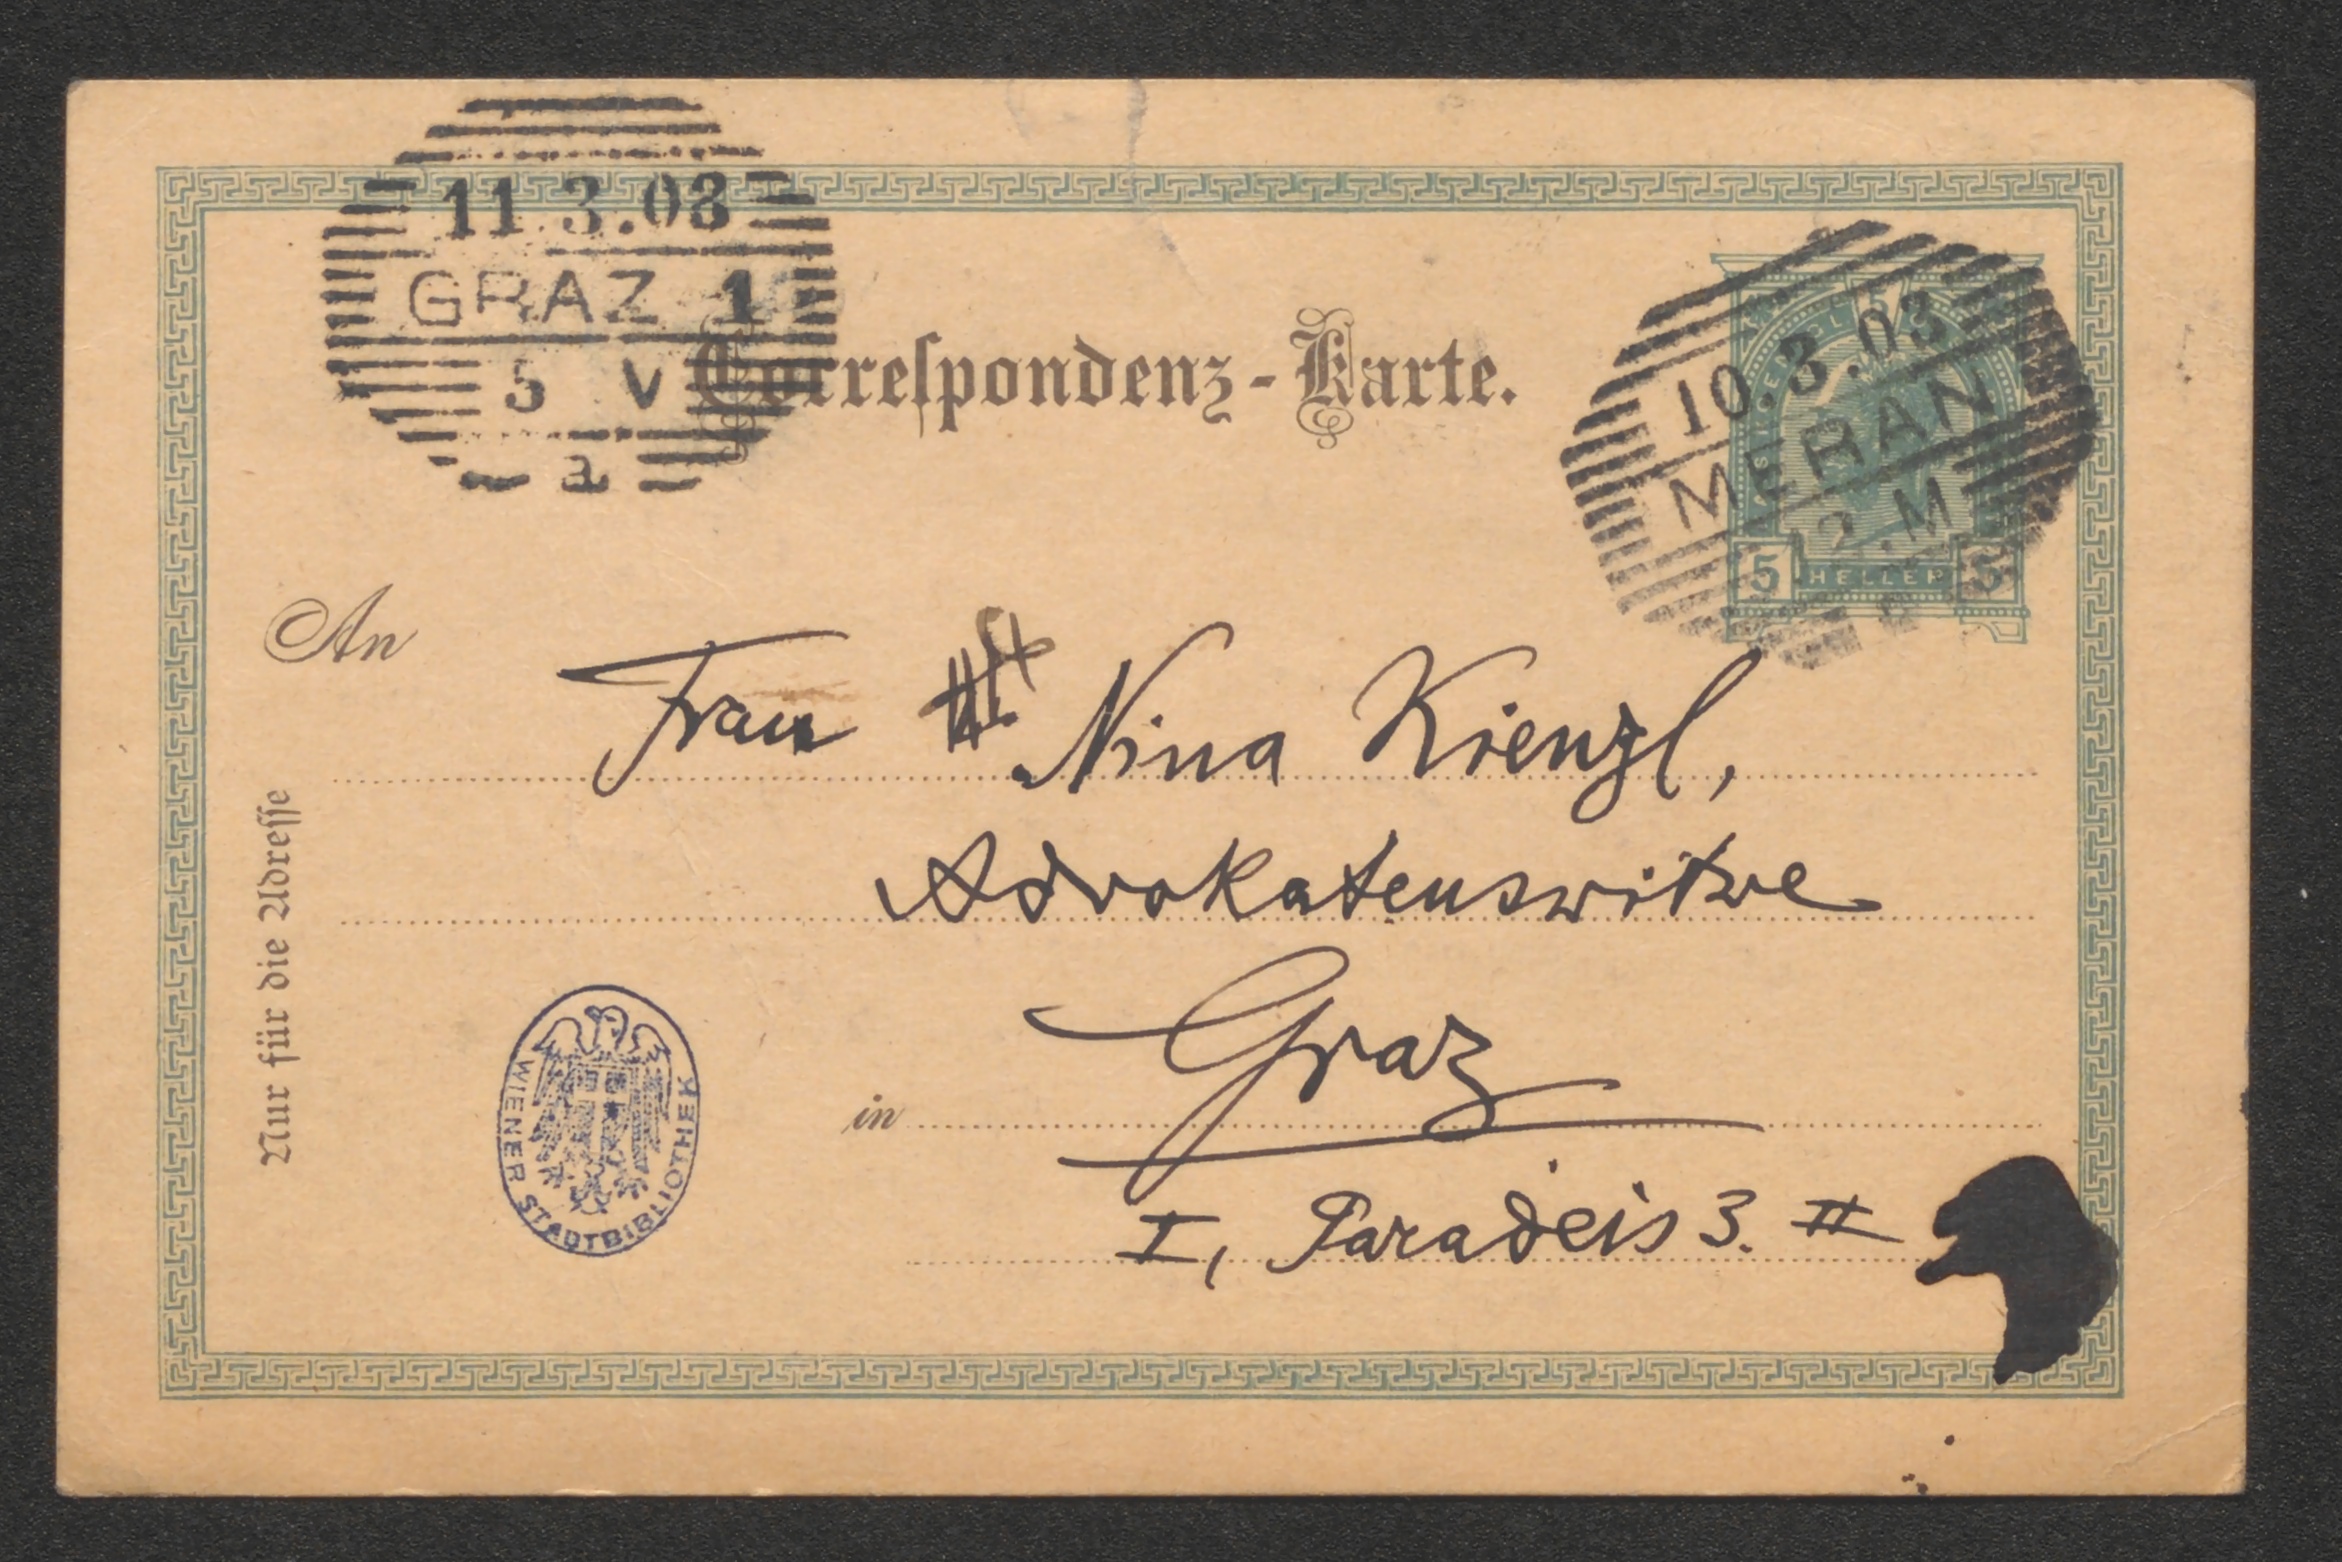 11.3.03
GRAZ 1
5 V
a
Correspondenz-Karte.
5
10.3.03
MERAN
2.M
5 HELLER 5
An
Frau Nina Kienzl,
Advokatenswitwe
in Graz
I, Paradeis 3. II
Nur für die Adresse
WIENER STADTBIBLIOTHEK